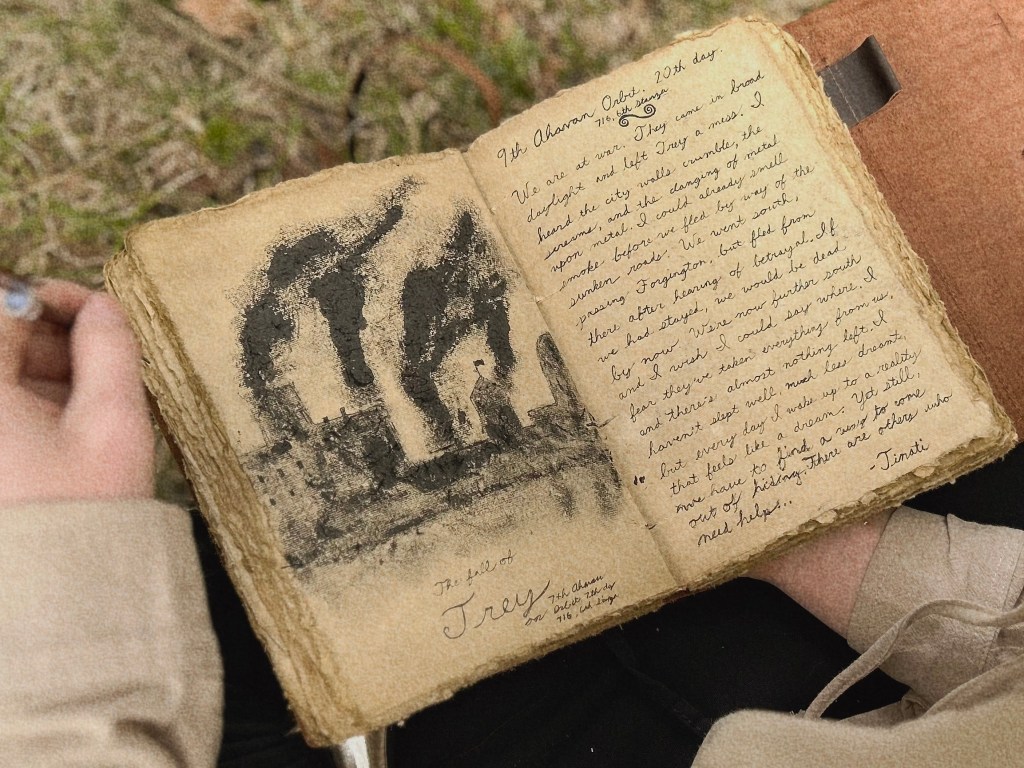 The fall of
Trey
on 7th Aharan
Orbit 7th day
716, 6th Stanza
9th Aharan Orbit, 20th day.
716, 6th Stanza
We are at war. They came in broad
daylight and left Trey a mess. I
heard the city walls crumble, the
screams, and the clanging of metal
upon metal. I could already smell
smoke before we fled by way of the
sunken roads. We went south,
passing Forgington, but fled from
there after hearing of betrayal. If
we had stayed, we would be dead
by now. We're now further south
and I wish I could say where. I
fear they've taken everything from us,
and there's almost nothing left. I
haven't slept well, much less dreamt,
but every day I wake up to a reality
that feels like a dream. Yet still,
we have to find a way to come
out of hiding. There are others who
need help...
-Tinati